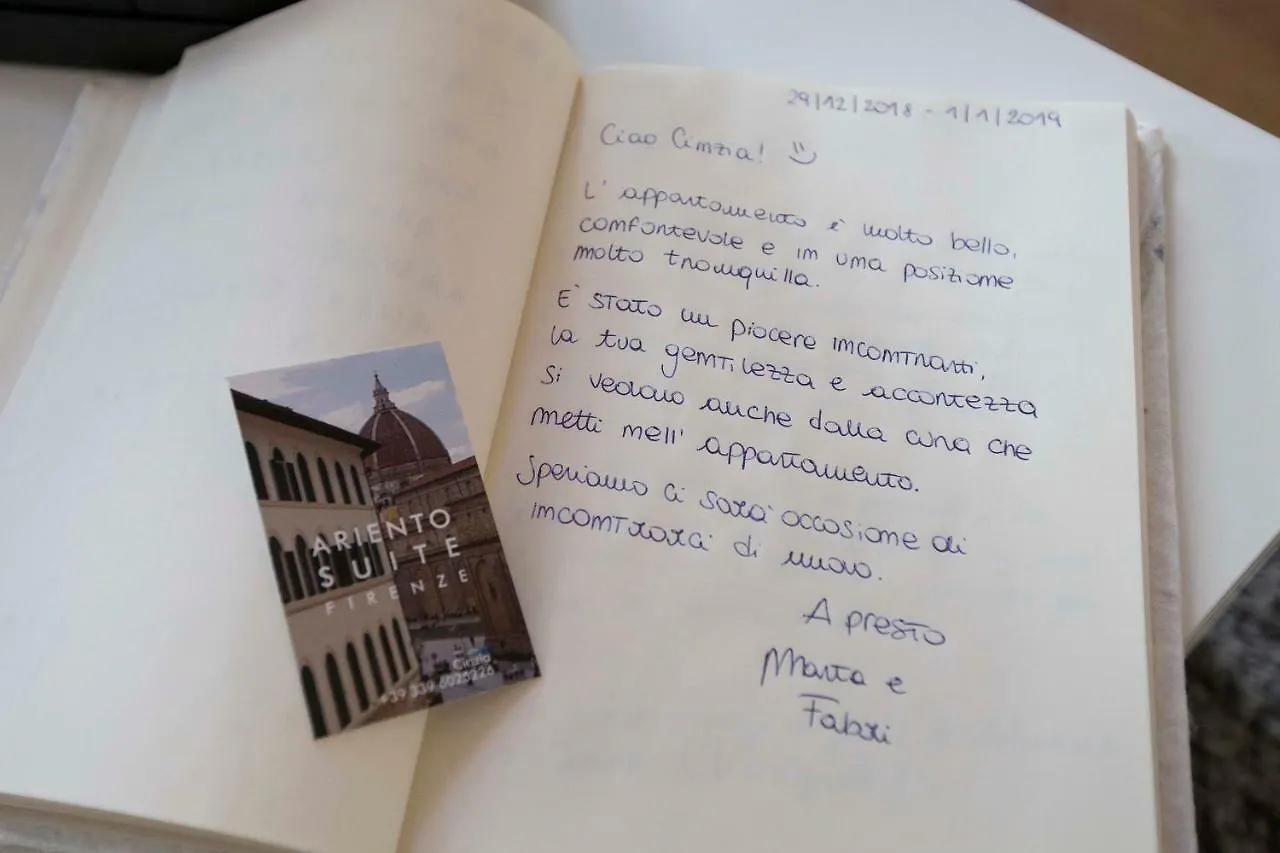 29/12/2018 - 1/1/2019
Ciao Cinzia!
L'appartamento è molto bello,
confortevole e in una posizione
molto tranquilla.
E' stato un piacere incontrarti,
la tua gentilezza e accortezza
si vedono anche dalla cura che
metti nell'appartamento.
Speriamo ci sarà occasione di
incontrarci di nuovo.
A presto
Marta e
Fabri
ARIENTO
SUITE
FIRENZE
Cinzia
+39 339 6025226